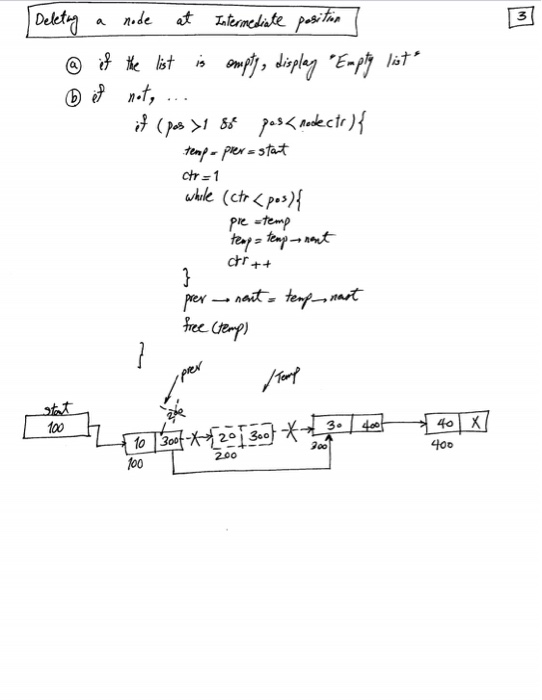 Deleting a node at Intermediate position
3
ⓐ if the list is empty, display "Empty list"
ⓑ if not, ...
if (pos >1 && pos<nodectr){
temp = prev = start
ctr = 1
while (ctr < pos){
pre = temp
temp = temp → next
ctr ++
}
prev → next = temp → next
free (temp)
}
prev
Temp
start
200
100
10 300 X 20 300 X 30 400 40 X
100 200 300 400